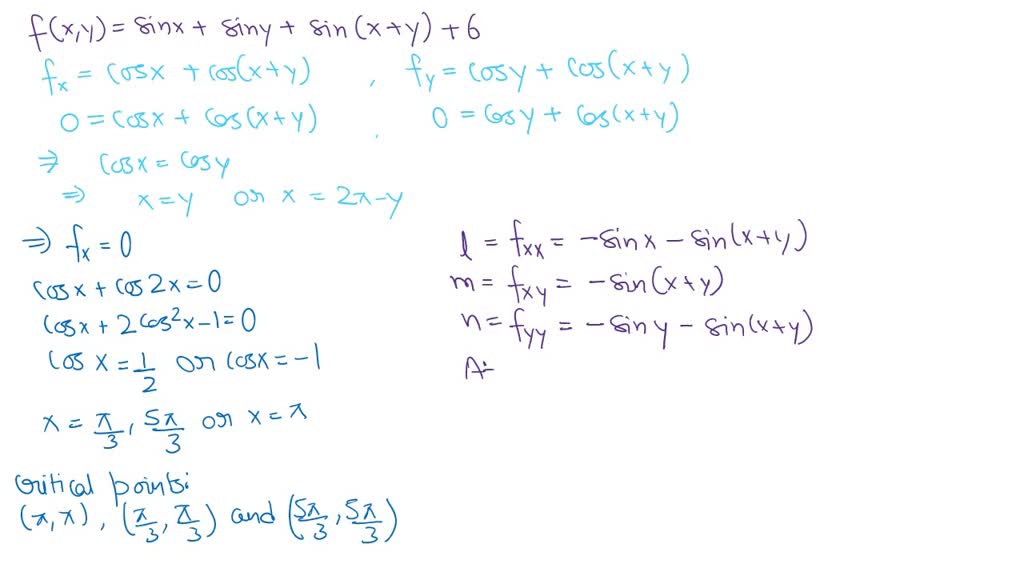 f(x,y) = sinx + siny + sin(x+y) + 6
fx = cosx + cos(x+y) , fy = cosy + cos(x+y)
0 = cosx + cos(x+y) , 0 = cosy + cos(x+y)
⇒ cosx = cosy
⇒ x = y or x = 2π-y
⇒ fx = 0
cosx + cos2x = 0
cosx + 2cos²x - 1 = 0
cos x = 1/2 or cosx = -1
x = π/3, 5π/3 or x = π
critical points:
(π,π), (π/3, π/3) and (5π/3, 5π/3)
l = fxx = -sinx - sin(x+y)
m = fxy = -sin(x+y)
n = fyy = -siny - sin(x+y)
A: